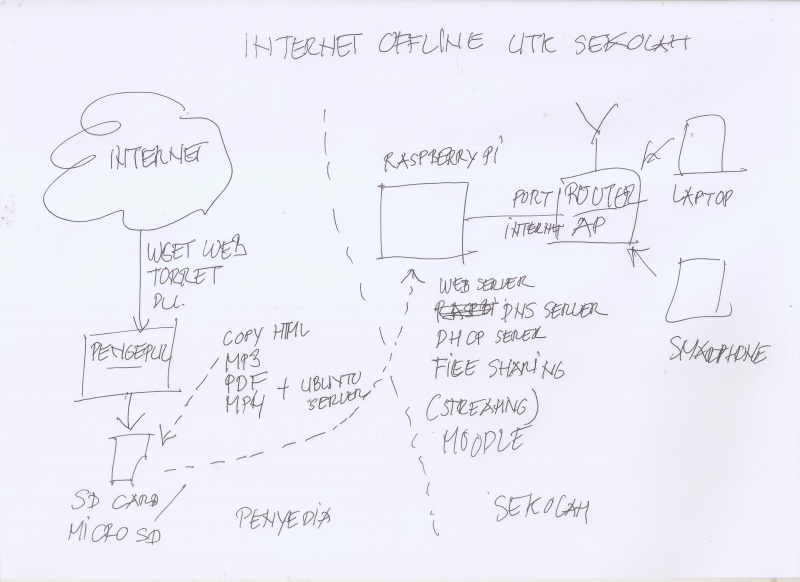 INTERNET OFFLINE UTK SEKOLAH
INTERNET
WGET WEB
TORRET
DLL.
PENGEPUL
COPY HTML
MP3
PDF
MP4 + UBUNTU
SERVER
SD CARD
MICRO SD
PENYEDIA
RASPBERRY PI
PORT
INTERNET
ROUTER
AP
LAPTOP
SMARTPHONE
WEB SERVER
DNS SERVER
DHCP SERER
FILE SHARING
(STREAMING)
MOODLE
SEKOLAH